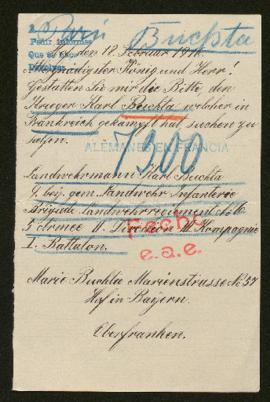 Paris
Buchta
Pedir informes
Que se
Devolver
den 18 Februar 1916
Allergnädigster König und Herr!
Gestatten Sie mir die Bitte, den
Krieger Karl Buchta welcher in
Frankreich gekämpft hat, suchen zu
helfen.
ALEMANES EN FRANCIA
7300
Landwehrmann Karl Buchta
bay. gem. Landwehr Infanterie
Brigade Landwehrregiment No
5 Armee Division III Kompagnie
I. Battalon.
Ficha
e.a.e.
Marie Buchta Marienstrasse No 57
Hof in Bayern.
Oberfranken.